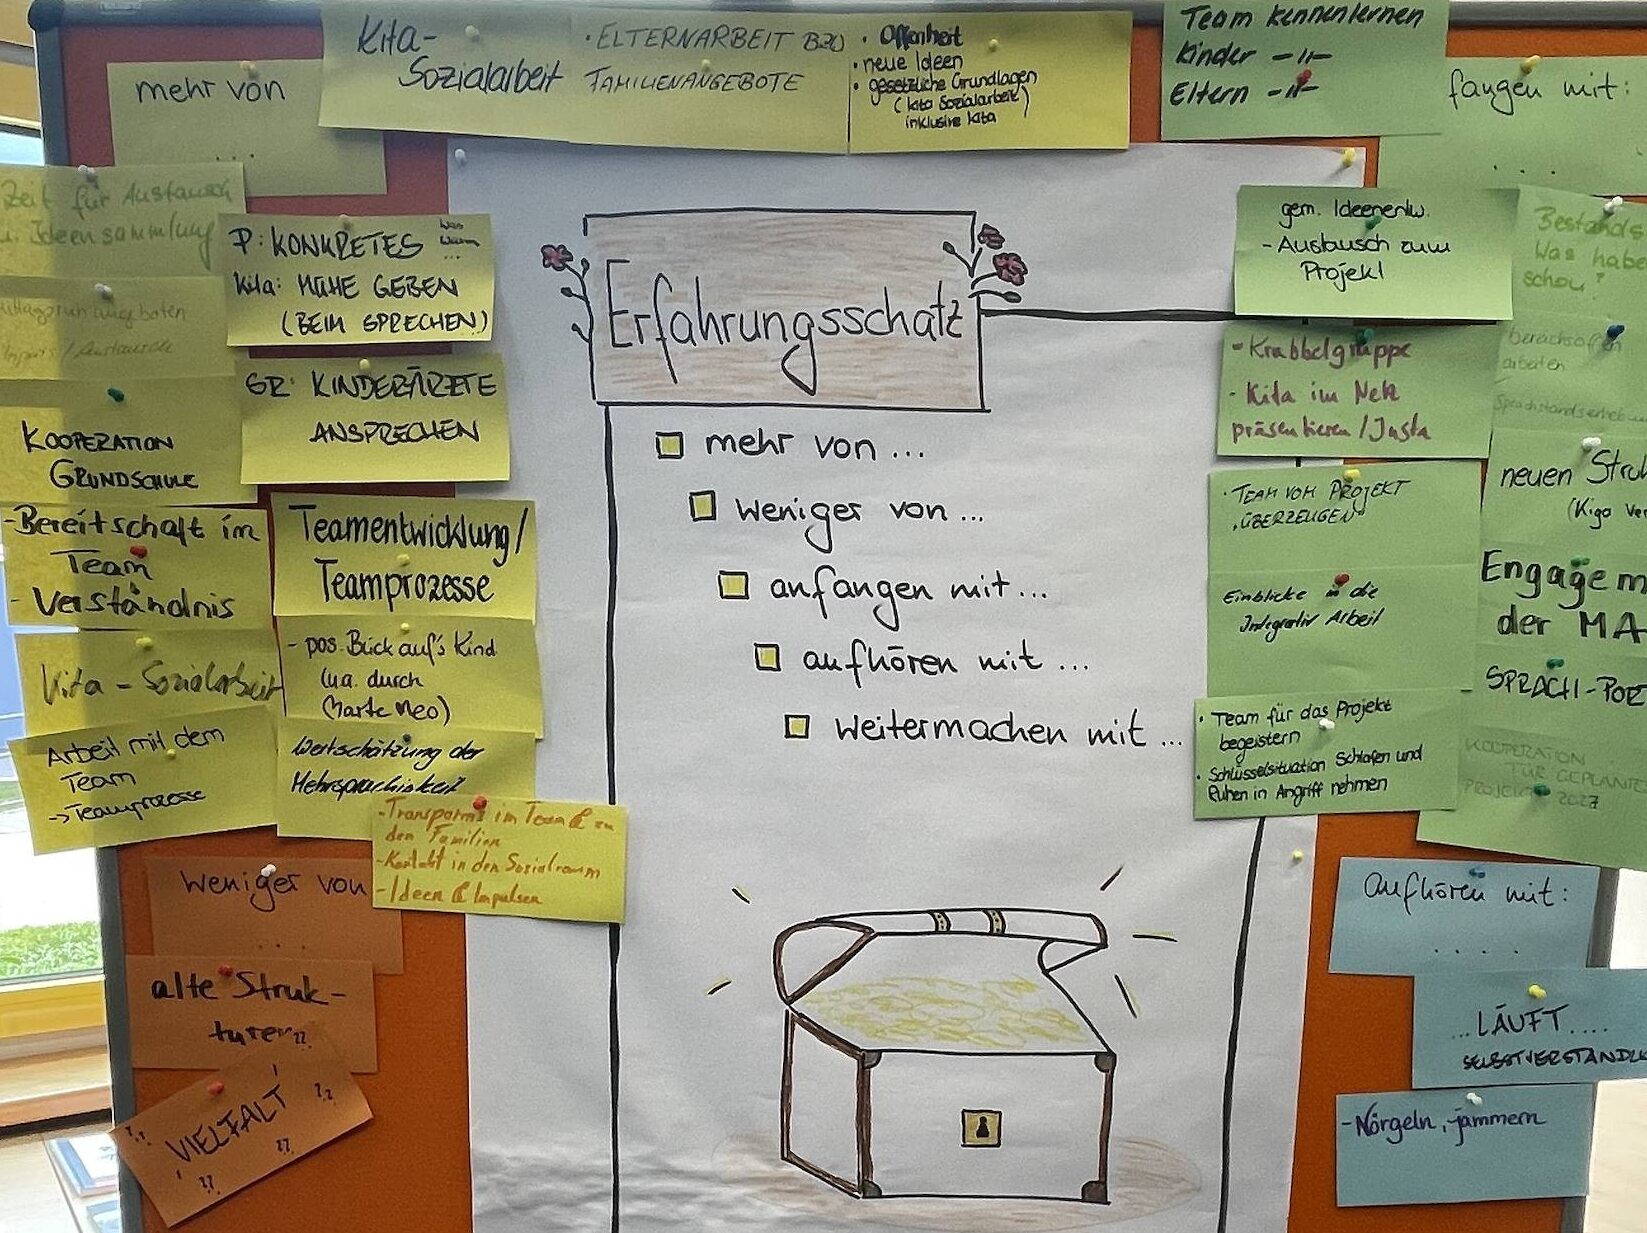 Kita-
Sozialarbeit
· ELTERNARBEIT BZW
FAMILIENANGEBOTE
· Offenheit
· neue Ideen
· gesetzliche Grundlagen
(Kita Sozialarbeit)
inklusive Kita
Team kennenlernen
Kinder -11-
Eltern -11-
mehr von
...
Zeit für Austausch
u. Ideensammlung
P: KONKRETES
Kita: MÜHE GEBEN
(BEIM SPRECHEN)
GR: KINDERÄRZTE
ANSPRECHEN
KOOPERATION
GRUNDSCHULE
- Bereitschaft im
Team
- Verständnis
Teamentwicklung/
Teamprozesse
Kita-Sozialarbeit
- pos. Blick auf's Kind
(u.a. durch
Marte Meo)
Arbeit mit dem
Team
-> Teamprozesse
Wertschätzung der
Mehrsprachigkeit
- Transparenz im Team & zu
den Familien
- Kontakt in den Sozialraum
- Ideen & Impulsen
weniger von
...
alte Struk-
turen ??
VIELFALT
Erfahrungsschatz
mehr von ...
weniger von ...
anfangen mit ...
aufhören mit ...
weitermachen mit ...
fangen mit:
....
gem. Ideenentw.
- Austausch zum
Projekt
Bestands
Was habe
schon?
- Krabbelgruppe
- Kita im Netz
präsentieren / Insta
arbeiten
· TEAM VOM PROJEKT
"ÜBERZEUGEN"
neuen Stru
(Kiga ver
Einblicke in die
Integrativ Arbeit
Engagem
der MA
SPRACH-POR
· Team für das Projekt
begeistern
· Schlüsselsituation Schlafen und
Ruhen in Angriff nehmen
KOOPERATION
FÜR GEPLANTE
PROJEKTE 2027
aufhören mit:
....
...LÄUFT....
SELBSTVERSTÄNDLI
- Nörgeln, jammern